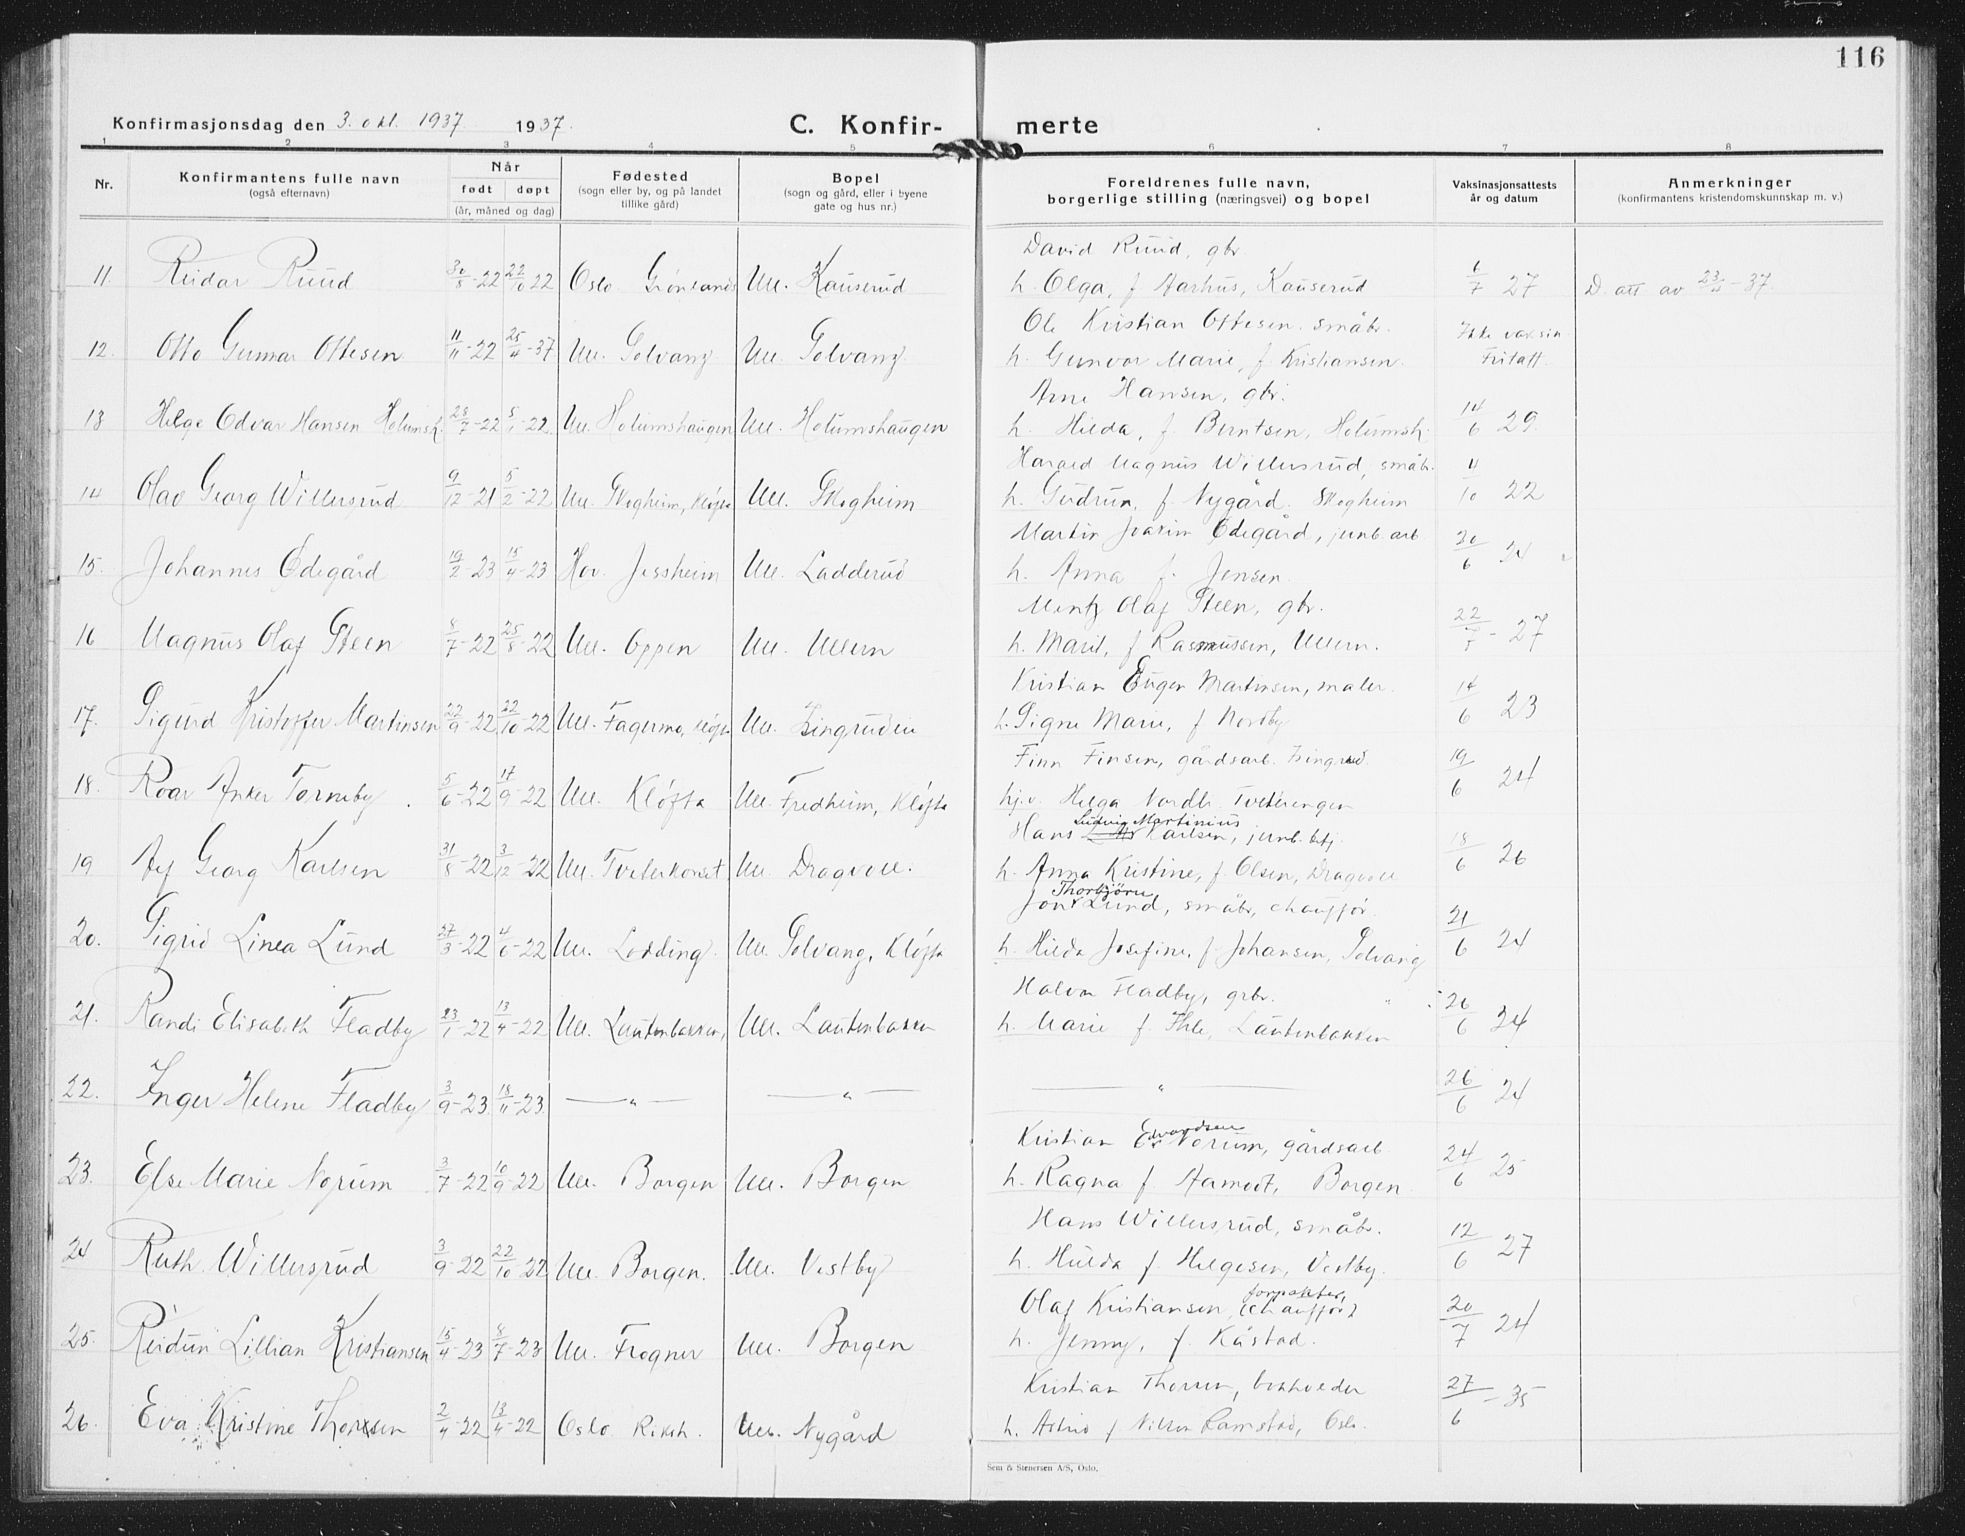 116
Konfirmasjonsdag den 3. okt. 1937. 1937.
C. Konfirmerte
1 2 3 4 5 6 7 8
Nr.
Konfirmantens fulle navn
(også efternavn)
Når
født døpt
(år, måned og dag)
Fødested
(sogn eller by, og på landet
tillike gård)
Bopel
(sogn og gård, eller i byene
gate og hus nr.)
Foreldrenes fulle navn,
borgerlige stilling (næringsvei) og bopel
Vaksinasjonsattests
år og datum
Anmerkninger
(konfirmantens kristendomskunnskap m. v.)
David Ruud, gbr.
11. Reidar Ruud 30/8-22 22/10 22 Oslo Grønlands Ull. Kauserud h. Olga, f. Aarhus, Kauserud 6/7 27 D. att av 23/4-37.
Ole Kristian Ottesen. småbr.
12. Otto Gunnar Ottesen 11/11-22 25/4-37 Ull. Solvang Ull. Solvang h. Gunvor Marie, f. Kristiansen. Ikke vaksin Fritatt.
Arne Hansen, gbr.
13 Helge Odvar Hansen Holumsh. 28/7-22 5/1-22 Ull. Holumshaugen Ull. Holumshaugen h. Hilda, f. Berntsen, Holumsh. 14/6 29.
Harald Magnus Willersrud, småbr.
14 Olav Georg Willersrud 9/12-21 5/2-22 Ull. Skogheim, Kløfta Ull. Skogheim h. Gudrun, f. Nygård. Skogheim 11/10 22
Martin Joakim Ødegård, jernb.arb.
15. Johannes Ødegård 19/2-23 15/4-23 Hov. Jessheim Ull. Ladderud h. Anna f. Jensen. 20/6 24
Mentz Olaf Steen, gbr.
16 Magnus Olaf Steen 8/7-22 25/8-22 Ull. Oppen Ull. Ullern h. Marit, f. Rasmussen, Ullern. 22/7-27
Kristian Eugen Martinsen, maler.
17. Sigurd Kristoffer Martinsen 22/9-22 22/10-22 Ull. Fagermo, Kløfta Ull. Isingruden h. Signe Marie, f. Nordby 14/6 23
Finn Finsen, gårdsarb. Isingrud.
18. Roar Anker Torneby. 5/6-22 17/9-22 Ull. Kløfta Ull. Fredheim, Kløfta hj.v. Helga Nordli. Tveterengen 19/6 24
Ludvig Martinius
Hans Karlsen, jernb.betj.
19 Alf Georg Karlsen 31/8-22 3/12-22 Ull. Tveterkorset Ull. Dragvoll. h. Anna Kristine, f. Olsen, Dragvoll 18/6 26
Thorbjörn
Jon Lund, småbr, chauffør.
20. Sigrid Linea Lund 27/3-22 4/6-22 Ull. Lodding. Ull. Solvang, Kløfta h. Hilda Josefine, f. Johansen, Solvang 21/6 24
Halvor Fladby, gbr.
21. Randi Elisabeth Fladby 23/1-22 13/4-22 Ull. Lautenbakken, Ull. Lautenbakken h. Marie f. Ihle, Lautenbakken 26/6 24
22. Inger Helene Fladby 3/9-23 18/11-23 — " — — " — — " — 26/6 24
Edvardsen
Kristian E. Norum, gårdsarb.
23. Else Marie Norum 3/7-22 10/9-22 Ull. Borgen Ull. Borgen h. Ragna f. Aamodt, Borgen 24/6 25
Hans Willersrud, småbr.
24 Ruth Willersrud 3/9-22 22/10-22 Ull. Borgen. Ull. Vestby h. Hulda f. Helgesen, Vestby. 12/6 27
forpakter,
Olaf Kristiansen, (chauffør)
25. Reidun Lillian Kristiansen 15/4-23 8/7-23 Ull. Frogner Ull. Borgen h. Jenny, f. Kåstad. 20/7 24
Kristian Thorsen, bokholder
26. Eva Kristine Thorsen 2/4-22 13/4-22 Oslo Riksh. Ull. Nygård h. Astrid f. Nilsen Ramstad, Oslo. 27/6-35
Sem & Stenersen A/S, Oslo.